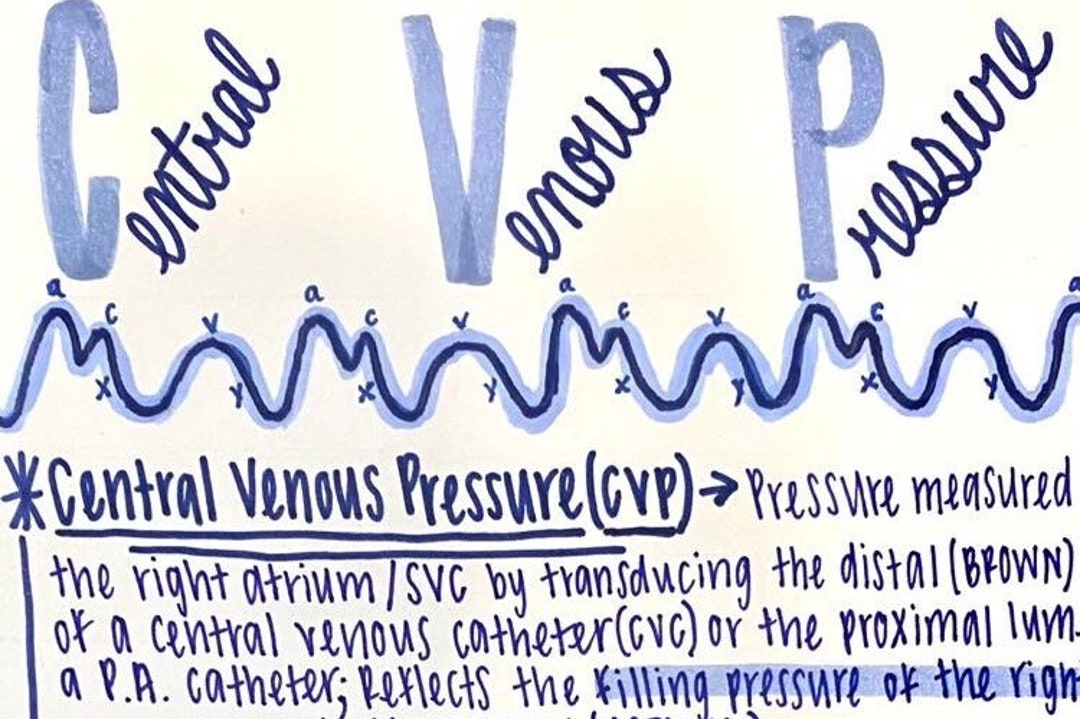 Central Venous Pressure
a c v a c v a c v a c v a
x y x y x y x y
*Central Venous Pressure (CVP) → Pressure measured
the right atrium/SVC by transducing the distal (BROWN)
of a central venous catheter (CVC) or the proximal lum
a P.A. catheter; Reflects the filling pressure of the righ